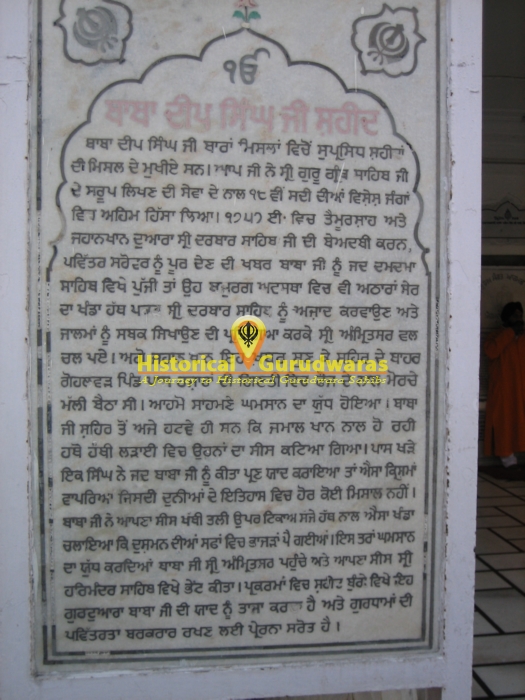 ੴ
ਬਾਬਾ ਦੀਪ ਸਿੰਘ ਜੀ ਸ਼ਹੀਦ
ਬਾਬਾ ਦੀਪ ਸਿੰਘ ਜੀ ਬਾਰਾਂ ਮਿਸਲਾਂ ਵਿਚੋਂ ਸੁਪ੍ਰਸਿਧ ਸ਼ਹੀਦਾਂ
ਦੀ ਮਿਸਲ ਦੇ ਮੁਖੀਏ ਸਨ। ਆਪ ਜੀ ਨੇ ਸ੍ਰੀ ਗੁਰੂ ਗ੍ਰੰਥ ਸਾਹਿਬ ਜੀ
ਦੇ ਸਰੂਪ ਲਿਖਣ ਦੀ ਸੇਵਾ ਦੇ ਨਾਲ ੧੮ ਵੀਂ ਸਦੀ ਦੀਆਂ ਵਿਸ਼ੇਸ਼ ਜੰਗਾਂ
ਵਿਚ ਅਹਿਮ ਹਿੱਸਾ ਲਿਆ। ੧੭੫੭ ਈ. ਵਿਚ ਤੈਮੂਰਸ਼ਾਹ ਅਤੇ
ਜਹਾਨਖਾਨ ਦੁਆਰਾ ਸ੍ਰੀ ਦਰਬਾਰ ਸਾਹਿਬ ਜੀ ਦੀ ਬੇਅਦਬੀ ਕਰਨ,
ਪਵਿੱਤਰ ਸਰੋਵਰ ਨੂੰ ਪੂਰ ਦੇਣ ਦੀ ਖਬਰ ਬਾਬਾ ਜੀ ਨੂੰ ਜਦ ਦਮਦਮਾ
ਸਾਹਿਬ ਵਿਖੇ ਪੁੱਜੀ ਤਾਂ ਉਹ ਬਜ਼ੁਰਗ ਅਵਸਥਾ ਵਿਚ ਵੀ ਅਠਾਰਾਂ ਸੇਰ
ਦਾ ਖੰਡਾ ਹੱਥ ਪਕੜ ਸ੍ਰੀ ਦਰਬਾਰ ਸਾਹਿਬ ਨੂੰ ਅਜ਼ਾਦ ਕਰਵਾਉਣ ਅਤੇ
ਜਾਲਮਾਂ ਨੂੰ ਸਬਕ ਸਿਖਾਉਣ ਦੀ ਕਰਕੇ ਸ੍ਰੀ ਅੰਮ੍ਰਿਤਸਰ ਵਲ
ਚਲ ਪਏ। ਦੇ ਬਾਹਰ
Historical Gurudwaras
ਗੋਹਲਵੜ ਪਿੰਡ ਮੋਰਚੇ
A Journey to Historical Gurudwara Sahibs
ਮੱਲੀ ਬੈਠਾ ਸੀ। ਆਹਮੋ ਸਾਹਮਣੇ ਘਮਸਾਨ ਦਾ ਯੁੱਧ ਹੋਇਆ। ਬਾਬਾ
ਜੀ ਸ਼ਹਿਰ ਤੋਂ ਅਜੇ ਹਟਵੇਂ ਹੀ ਸਨ ਕਿ ਜਮਾਲ ਖਾਨ ਨਾਲ ਹੋ ਰਹੀ
ਹਥੋ ਹੱਥੀ ਲੜਾਈ ਵਿਚ ਉਹਨਾਂ ਦਾ ਸੀਸ ਕਟਿਆ ਗਿਆ। ਪਾਸ ਖੜੇ
ਇਕ ਸਿੰਘ ਨੇ ਜਦ ਬਾਬਾ ਜੀ ਨੂੰ ਕੀਤਾ ਪ੍ਰਣ ਯਾਦ ਕਰਾਇਆ ਤਾਂ ਐਸਾ ਕ੍ਰਿਸ਼ਮਾ
ਵਾਪਰਿਆ ਜਿਸਦੀ ਦੁਨੀਆਂ ਦੇ ਇਤਿਹਾਸ ਵਿਚ ਹੋਰ ਕੋਈ ਮਿਸਾਲ ਨਹੀਂ।
ਬਾਬਾ ਜੀ ਨੇ ਆਪਣਾ ਸੀਸ ਖੱਬੀ ਤਲੀ ਉਪਰ ਟਿਕਾਅ ਸੱਜੇ ਹੱਥ ਨਾਲ ਐਸਾ ਖੰਡਾ
ਚਲਾਇਆ ਕਿ ਦੁਸ਼ਮਨ ਦੀਆਂ ਸਫਾਂ ਵਿਚ ਭਾਜੜਾਂ ਪੈ ਗਈਆਂ। ਇਸ ਤਰਾਂ ਘਮਸਾਨ
ਦਾ ਯੁੱਧ ਕਰਦਿਆਂ ਬਾਬਾ ਜੀ ਸ੍ਰੀ ਅੰਮ੍ਰਿਤਸਰ ਪਹੁੰਚੇ ਅਤੇ ਆਪਣਾ ਸੀਸ ਸ੍ਰੀ
ਹਰਿਮੰਦਰ ਸਾਹਿਬ ਵਿਖੇ ਭੇਂਟ ਕੀਤਾ। ਪ੍ਰਕਰਮਾਂ ਵਿਚ ਸ਼ਹੀਦ ਬੁੰਗੇ ਵਿਖੇ ਇਹ
ਗੁਰਦੁਆਰਾ ਬਾਬਾ ਜੀ ਦੀ ਯਾਦ ਨੂੰ ਤਾਜਾ ਕਰਦਾ ਹੈ ਅਤੇ ਗੁਰਧਾਮਾਂ ਦੀ
ਪਵਿੱਤਰਤਾ ਬਰਕਰਾਰ ਰਖਣ ਲਈ ਪ੍ਰੇਰਨਾ ਸਰੋਤ ਹੈ।